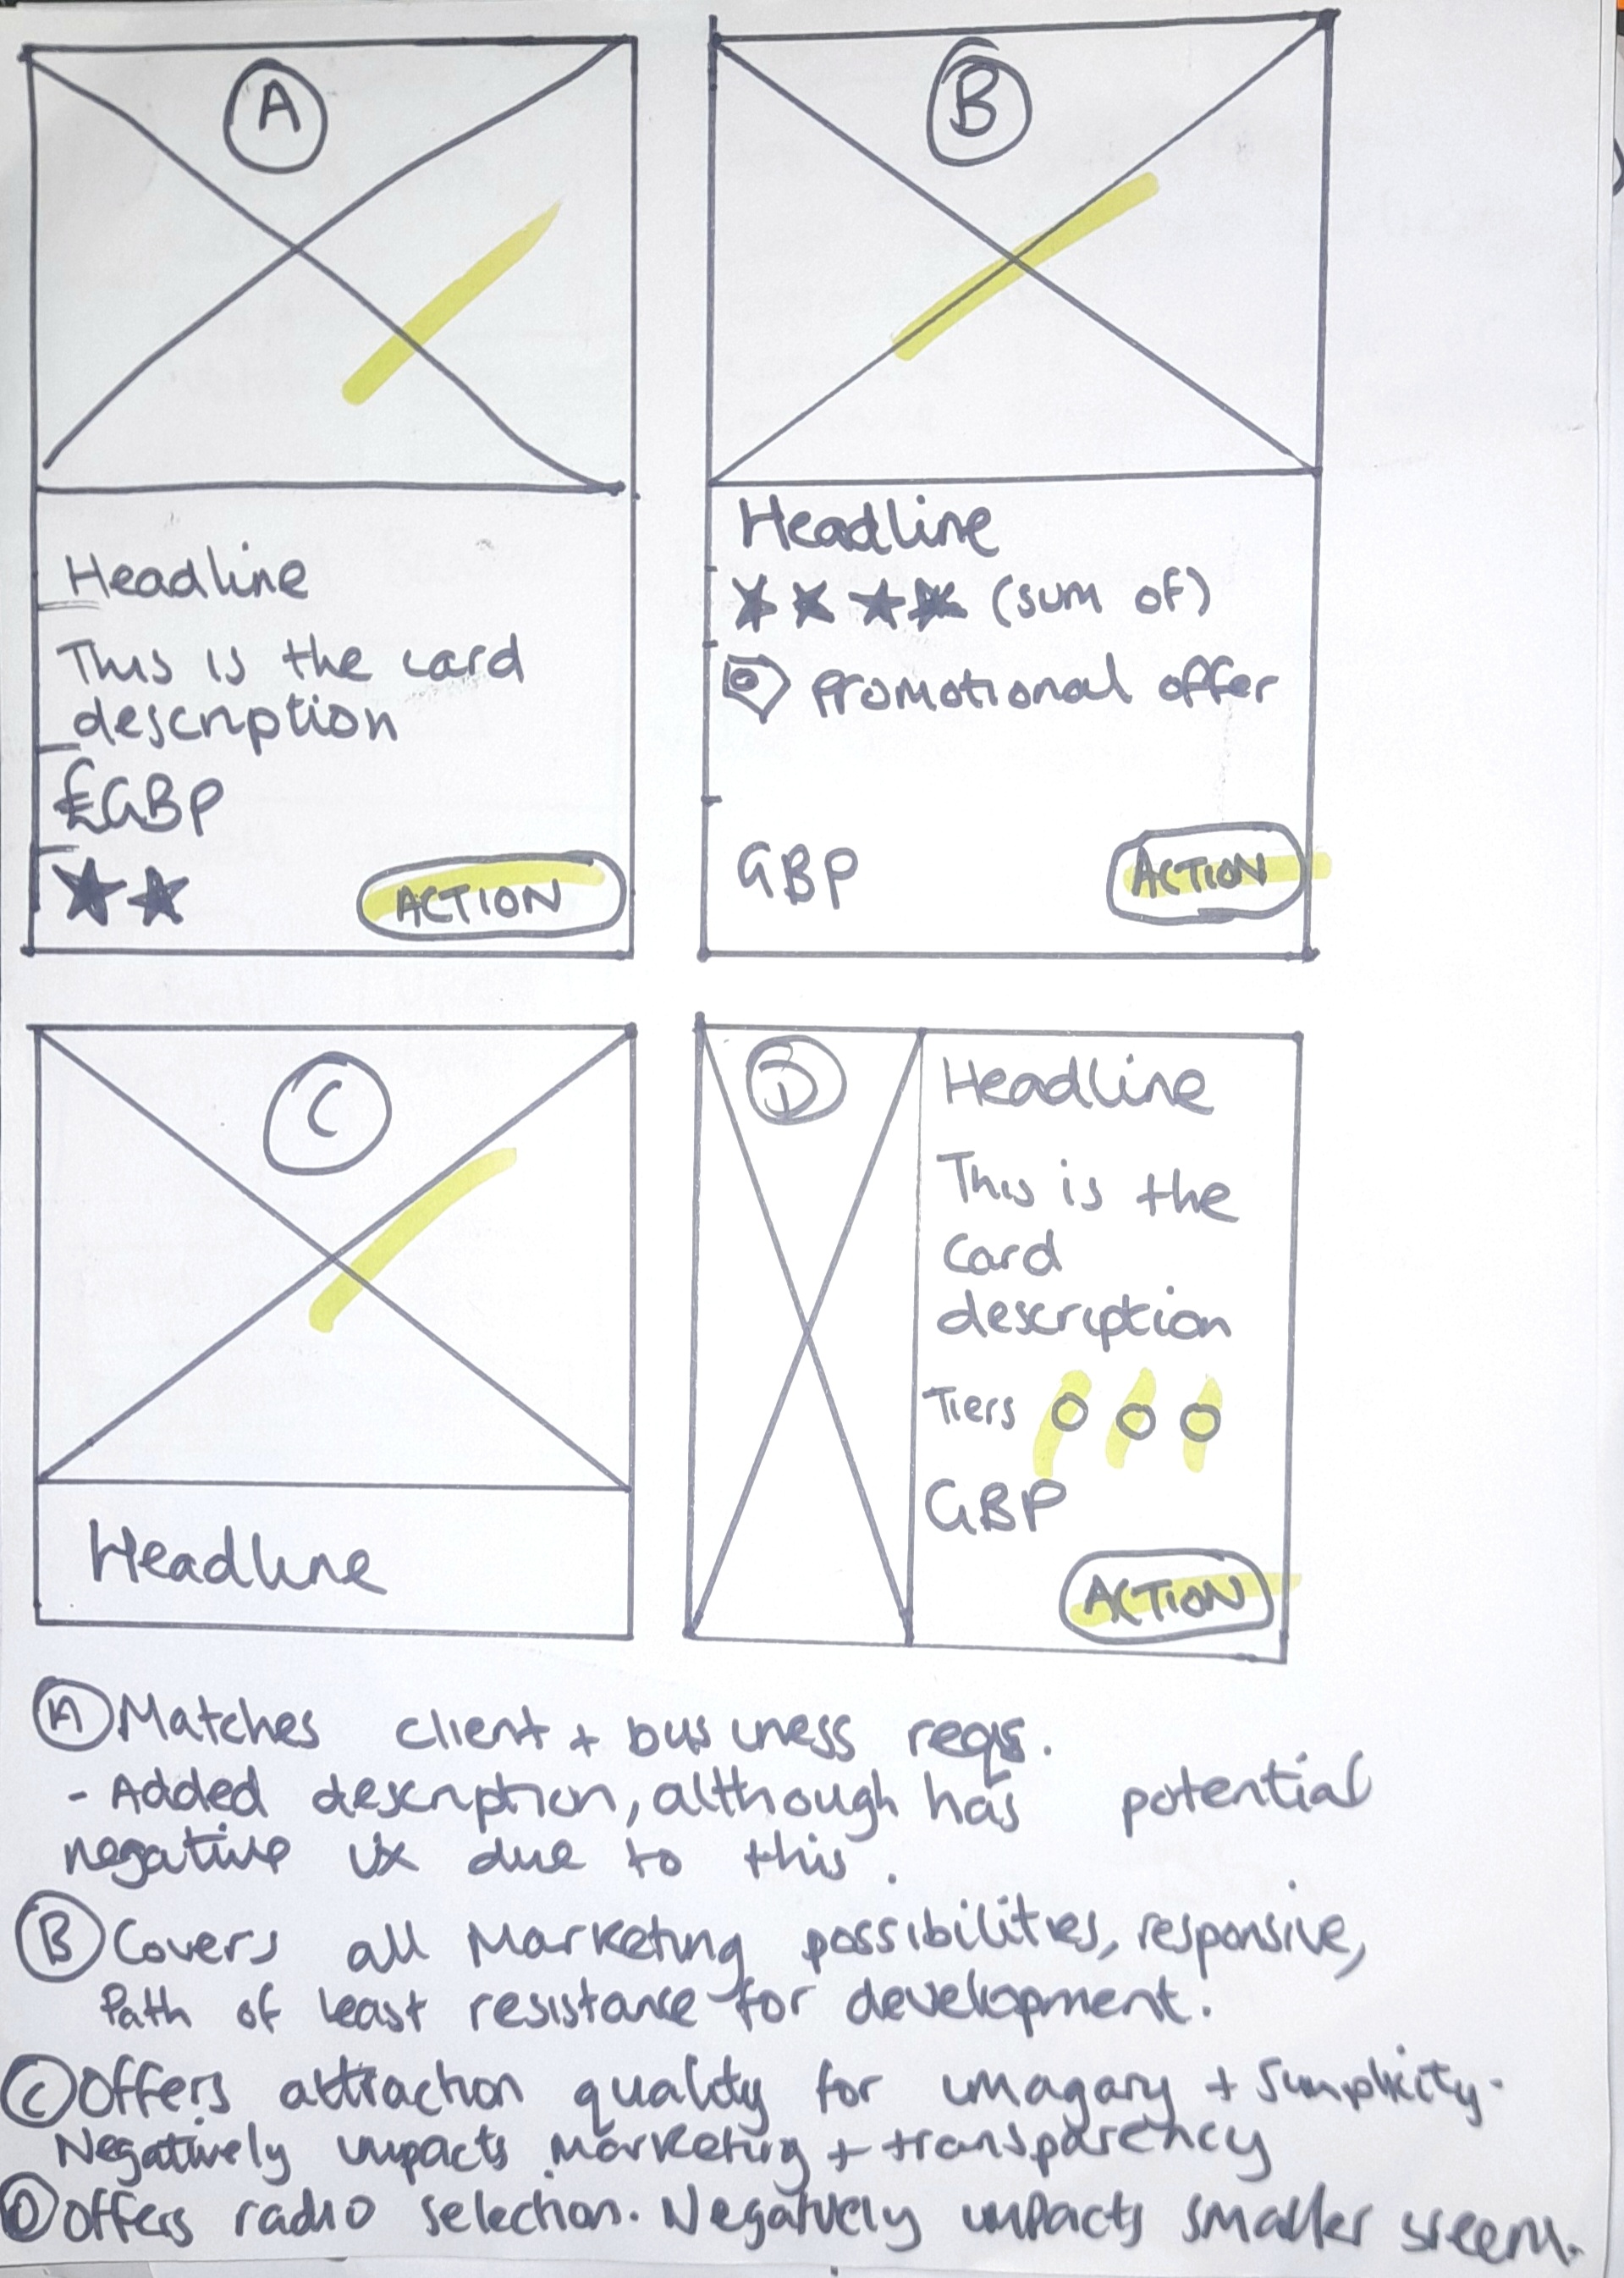 A
Headline
This is the card
description
£GBP
ACTION
B
Headline
(sum of)
Promotional offer
GBP
ACTION
C
Headline
D
Headline
This is the
Card
description
Tiers
GBP
ACTION
A Matches client + business reqs.
- Added description, although has potential
negative UX due to this.
B Covers all Marketing possibilities, responsive,
Path of least resistance for development.
C Offers attraction quality for imagary + Simplicity.
Negatively impacts marketing + transparency
D Offers radio selection. Negatively impacts smaller